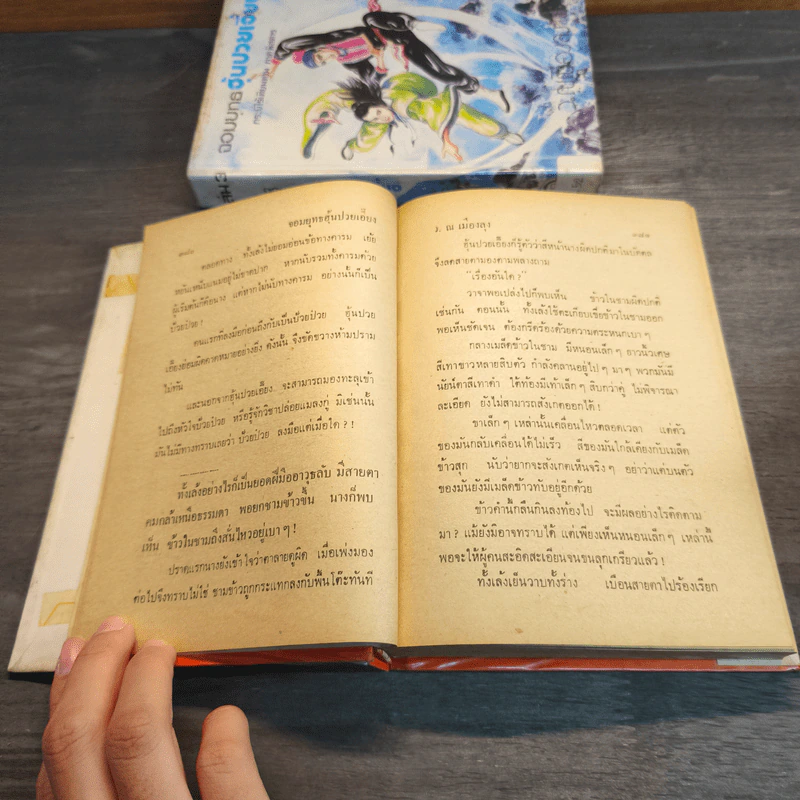 จอมยุทธฮุ้นปวยเอี้ยง
เล่ม ๓
จอมยุทธฮุ้นปวยเอี้ยง
ตลอดทาง ทั้งเล้งไม่ยอมอ่อนข้อทางคารม เย้ย
หยันเหน็บแนมอยู่ไม่ขาดปาก หากนับรวมทั้งคารมด้วย
ผู้เริ่มต้นก็คือนาง แต่หากไม่นับทางคารม อย่างนั้นก็เป็น
ป้วยป่วย !
คนแรกที่ลงมือก่อนถึงกับเป็นป้วยป่วย ฮุ้นปวย
เอี้ยงย่อมผิดคาดหมายอย่างยิ่ง ดังนั้น จึงขัดขวางห้ามปราม
ไม่ทัน
และนอกจากฮุ้นปวยเอี้ยง จะสามารถมองทะลุเข้า
ไปถึงหัวใจป้วยป่วย หรือรู้จักวิชาปล่อยแมลงกู่ มิเช่นนั้น
มันไม่มีทางทราบเลยว่า ป้วยป่วย ลงมือแต่เมื่อใด ? !
ทั้งเล้งอย่างไรก็เป็นยอดฝีมืออาวุธลับ มีสายตา
คมกล้าเหนือธรรมดา พอยกชามข้าวขึ้น นางก็พบ
เห็น ข้าวในชามถึงสั่นไหวอยู่เบา ๆ !
ปราดแรกนางยังเข้าใจว่าตาลายดูผิด เมื่อเพ่งมอง
ต่อไปจึงทราบไม่ใช่ ชามข้าวถูกกระแทกลงกับพื้นโต๊ะทันที
ง. ณ เมืองลุง
ฮุ้นปวยเอี้ยงก็รู้ตัวว่าสีหน้านางผิดปกติมาในบัดดล
จึงลดสายตามองตามพลางถาม
"เรื่องอันใด ?"
วาจาพอเปล่งไปก็พบเห็น ข้าวในชามผิดปกติ
เช่นกัน ตอนนั้น ทั้งเล้งใช้ตะเกียบเขี่ยข้าวในชามออก
พอเห็นชัดเจน ต้องกรีดร้องด้วยความตระหนกเบา ๆ
กลางเมล็ดข้าวในชาม มีหนอนเล็ก ๆ ยาวนิ้วเศษ
สีเทาขาวหลายสิบตัว กำลังคลานอยู่ไป ๆ มา ๆ พวกมันมี
นัยน์ตาสีเทาดำ ใต้ท้องมีเท้าเล็ก ๆ สิบกว่าคู่ ไม่พิจารณา
ละเอียด ยังไม่สามารถสังเกตออกได้ !
ขาเล็ก ๆ เหล่านั้นเคลื่อนไหวตลอดเวลา แต่ตัว
ของมันกลับเคลื่อนได้ไม่เร็ว สีของมันใกล้เคียงกับเมล็ด
ข้าวสุก นับว่ายากจะสังเกตเห็นจริง ๆ อย่าว่าแต่บนตัว
ของมันยังมีเมล็ดข้าวทับอยู่อีกด้วย
ข้าวคำนี้กลืนกินลงท้องไป จะมีผลอย่างไรติดตาม
มา ? แม้ยังมิอาจทราบได้ แต่เพียงเห็นหนอนเล็ก ๆ เหล่านี้
พอจะให้ผู้คนสะอิดสะเอียนจนขนลุกเกรียวแล้ว !
ทั้งเล้งเย็นวาบทั้งร่าง เบือนสายตาไปร้องเรียก